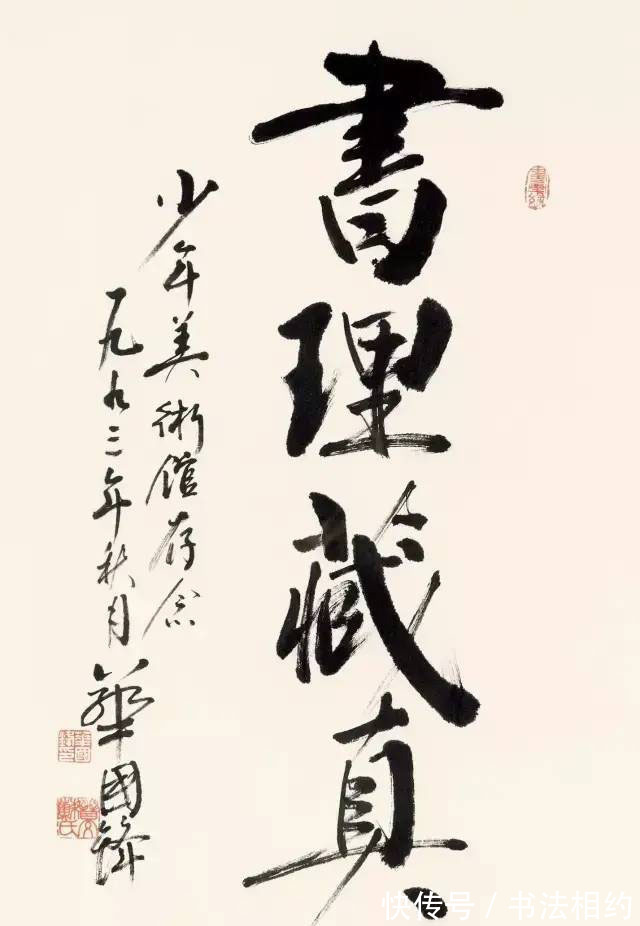 書理藏真
少年美術館存念
一九九二年秋月
華國鋒
快传号/书法相约